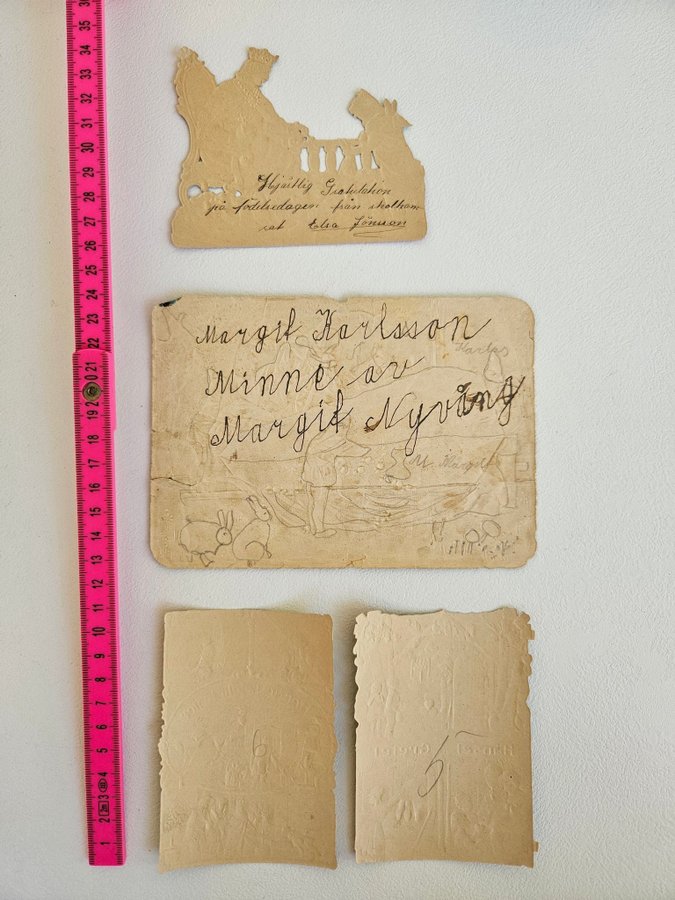 Hjärtlig Gratulation
på födelsedagen från skolkam
rat Elsa Jönsson
Margit Karlsson
Minne av
Margit Nyvång
6
5
1 2 3 4 5 6 7 8 9 10 11 12 13 14 15 16 17 18 19 20 21 22 23 24 25 26 27 28 29 30 31 32 33 34 35 36